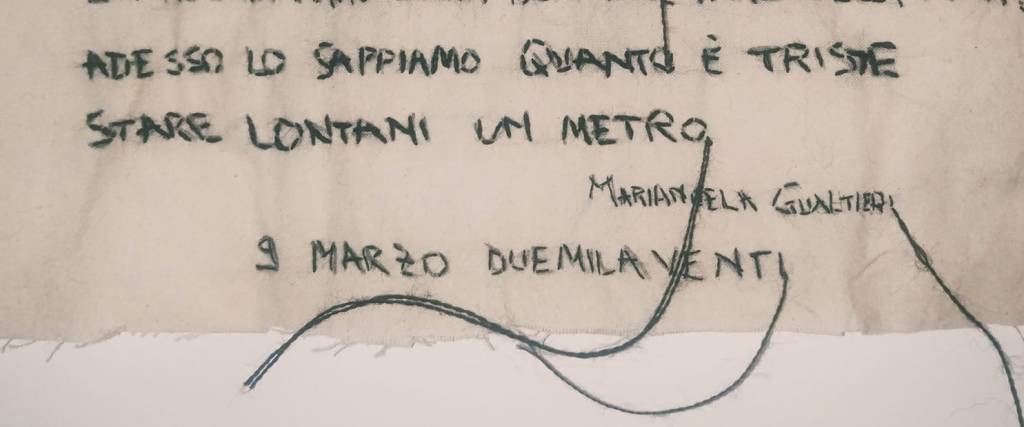 ADESSO LO SAPPIAMO QUANTO È TRISTE
STARE LONTANI UN METRO
MARIANGELA GUALTIERI
9 MARZO DUEMILAVENTI